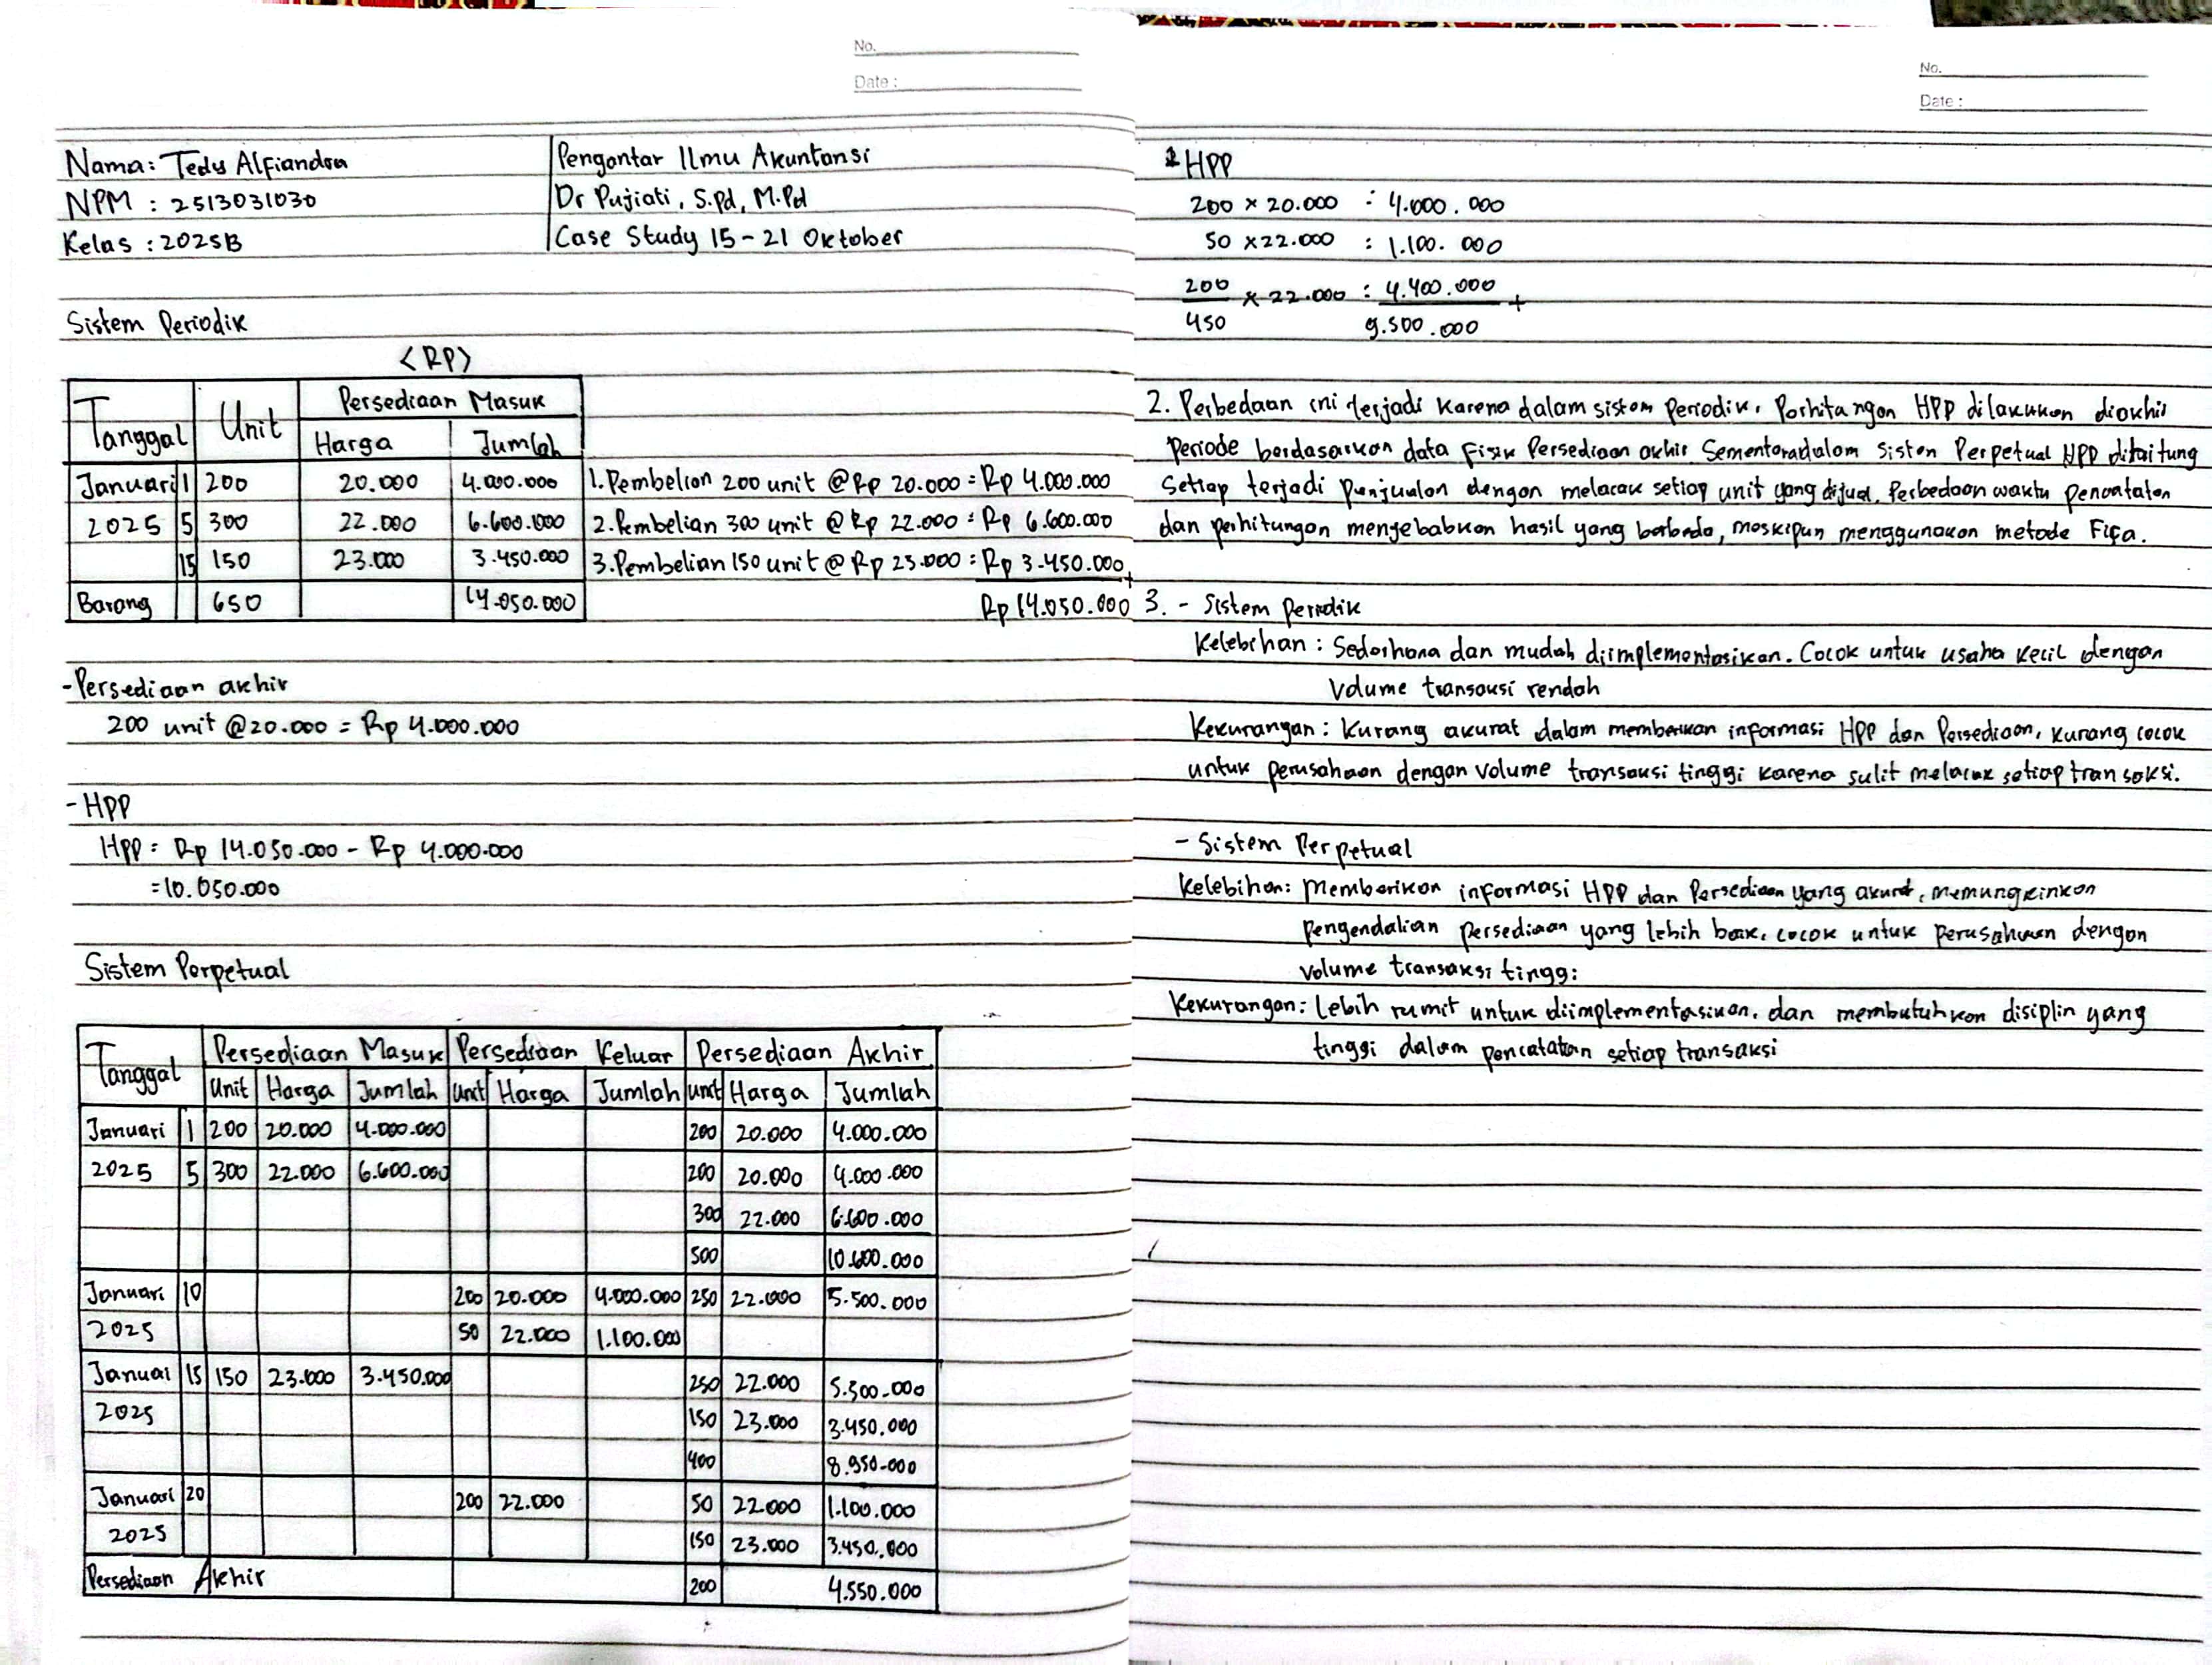 No.
Date :
Nama: Tedy Alfiandra
NPM : 2513031030
Kelas : 2025B
Pengantar Ilmu Akuntansi
Dr Pujiati, S.Pd, M.Pd
Case Study 15-21 Oktober
Sistem Periodik
<RP>
Tanggal Unit Persediaan Masuk
Harga Jumlah
Januari 1 200 20.000 4.000.000 1.Pembelian 200 unit @Rp 20.000 = Rp 4.000.000
2025 5 300 22.000 6.600.000 2.Pembelian 300 unit @Rp 22.000 = Rp 6.600.000
15 150 23.000 3.450.000 3.Pembelian 150 unit @Rp 23.000 = Rp 3.450.000 +
Barang 650 14.050.000 Rp 14.050.000
-Persediaan akhir
200 unit @20.000 = Rp 4.000.000
- HPP
HPP = Rp 14.050.000 - Rp 4.000.000
=10.050.000
Sistem Perpetual
Tanggal Persediaan Masuk Persediaan Keluar Persediaan Akhir
Unit Harga Jumlah Unit Harga Jumlah unit Harga Jumlah
Januari 1 200 20.000 4.000.000 200 20.000 4.000.000
2025 5 300 22.000 6.600.000 200 20.000 4.000.000
300 22.000 6.600.000
500 10.600.000
Januari 10 200 20.000 4.000.000 250 22.000 5.500.000
2025 50 22.000 1.100.000
Januai 15 150 23.000 3.450.000 250 22.000 5.500.000
2025 150 23.000 3.450.000
400 8.950.000
Januari 20 200 22.000 50 22.000 1.100.000
2025 150 23.000 3.450.000
Persediaan Akhir 200 4.550.000
No.
Date :
HPP
200 x 20.000 : 4.000.000
50 x 22.000 : 1.100.000
200 x 22.000 : 4.400.000 +
450 9.500.000
2. Perbedaan ini terjadi karena dalam sistem periodik, Perhitangan HPP dilakukan diakhir
periode berdasarkan data fisik Persediaan akhir. Sementara dalam Sistem Perpetual HPP dihitung
Setiap terjadi penjualan dengan melacak setiap unit yang dijual. Perbedaan waktu pencatatan
dan perhitungan menyebabkan hasil yang berbeda, meskipun menggunakan metode Fifa.
3. - Sistem periodik
Kelebihan : Sederhana dan mudah diimplementasikan. Cocok untuk usaha kecil dengan
Volume transaksi rendah
Kekurangan : Kurang akurat dalam memberikan informasi HPP dan Persediaan, kurang cocok
untuk perusahaan dengan volume transaksi tinggi karena sulit melacak setiap transaksi.
- Sistem Perpetual
Kelebihan: Memberikan informasi HPP dan Persediaan yang akurat, memungkinkan
pengendalian persediaan yang lebih baik, cocok untuk perusahaan dengan
volume transaksi tinggi
Kekurangan: Lebih rumit untuk diimplementasikan, dan membutuhkan disiplin yang
tinggi dalam pencatatan setiap transaksi